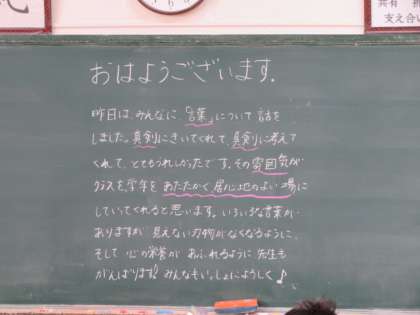 共有
支え合い
おはようございます。
昨日は、みんなに、「言葉」について話を
しました。真剣にきいてくれて、真剣に考えて
くれて、とてもうれしかったです。その雰囲気が
クラスを、学年を あたたかく居心地のよい場に
していってくれると思います。いろいろな言葉が
ありますが 見えない刃物がなくなるように、
そして 心の栄養が あふれるように 先生も
がんばります! みんなもいっしょによろしく♪